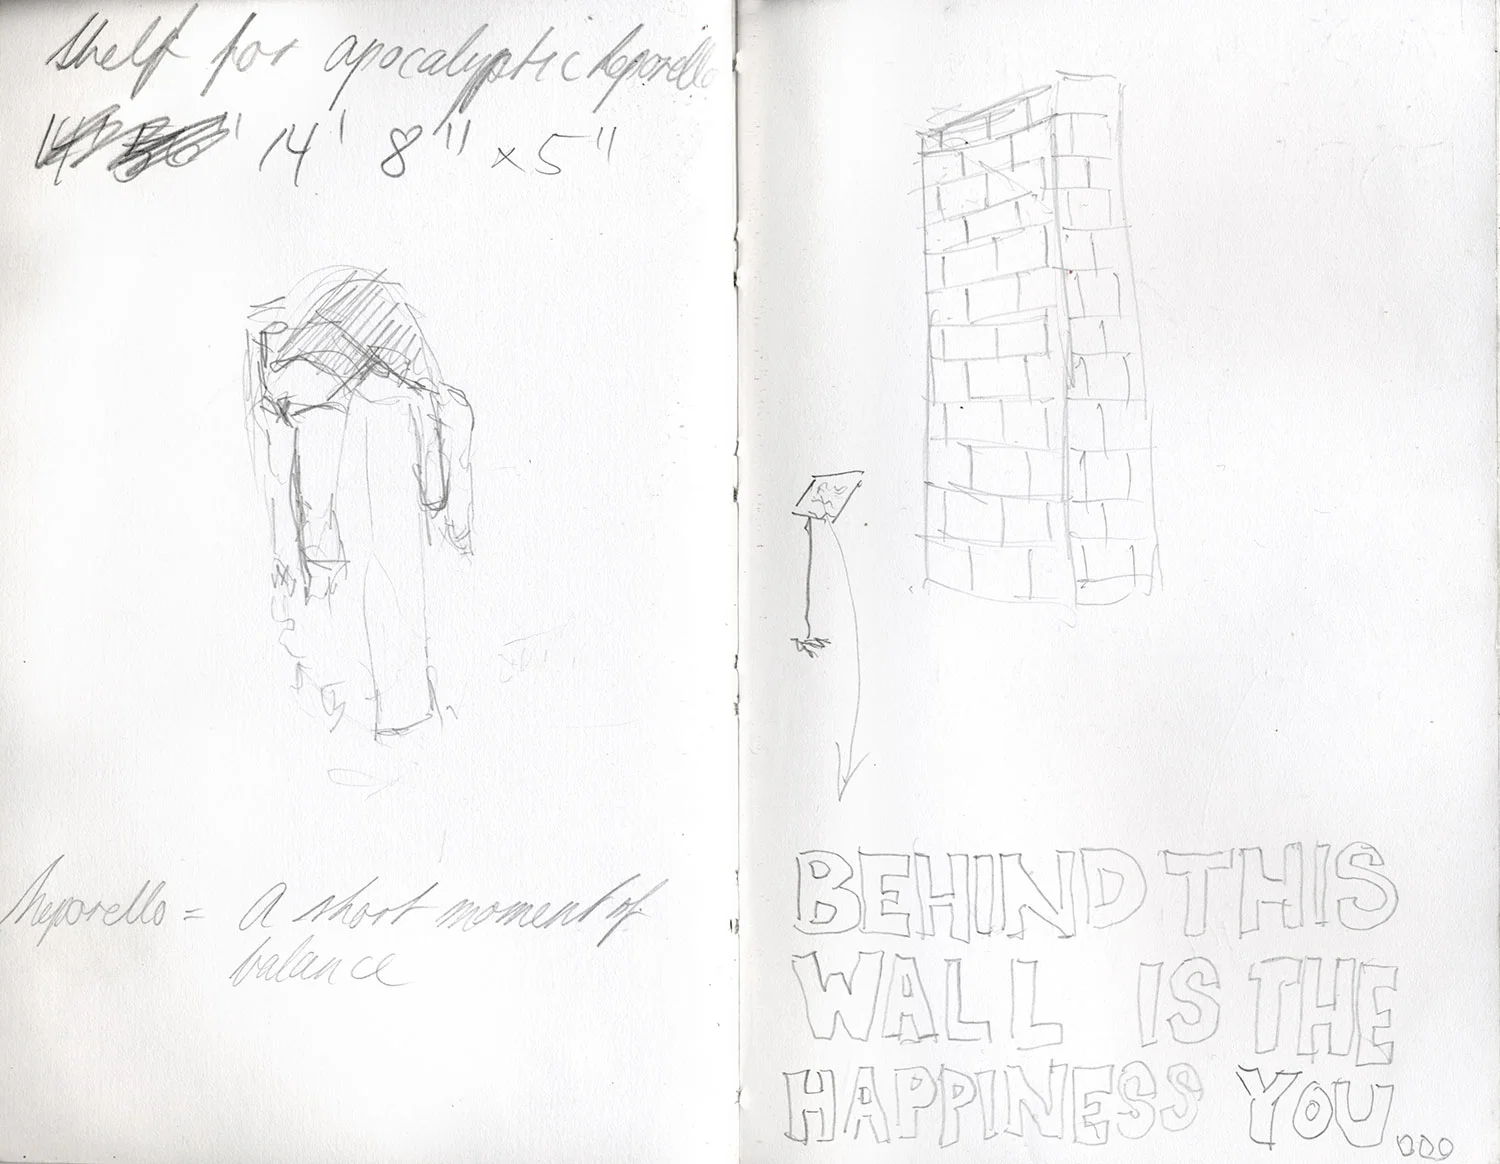 shelf for apocalyptic leporello
14' 8" x 5"
leporello = a short moment of
balance
BEHIND THIS
WALL IS THE
HAPPINESS YOU...